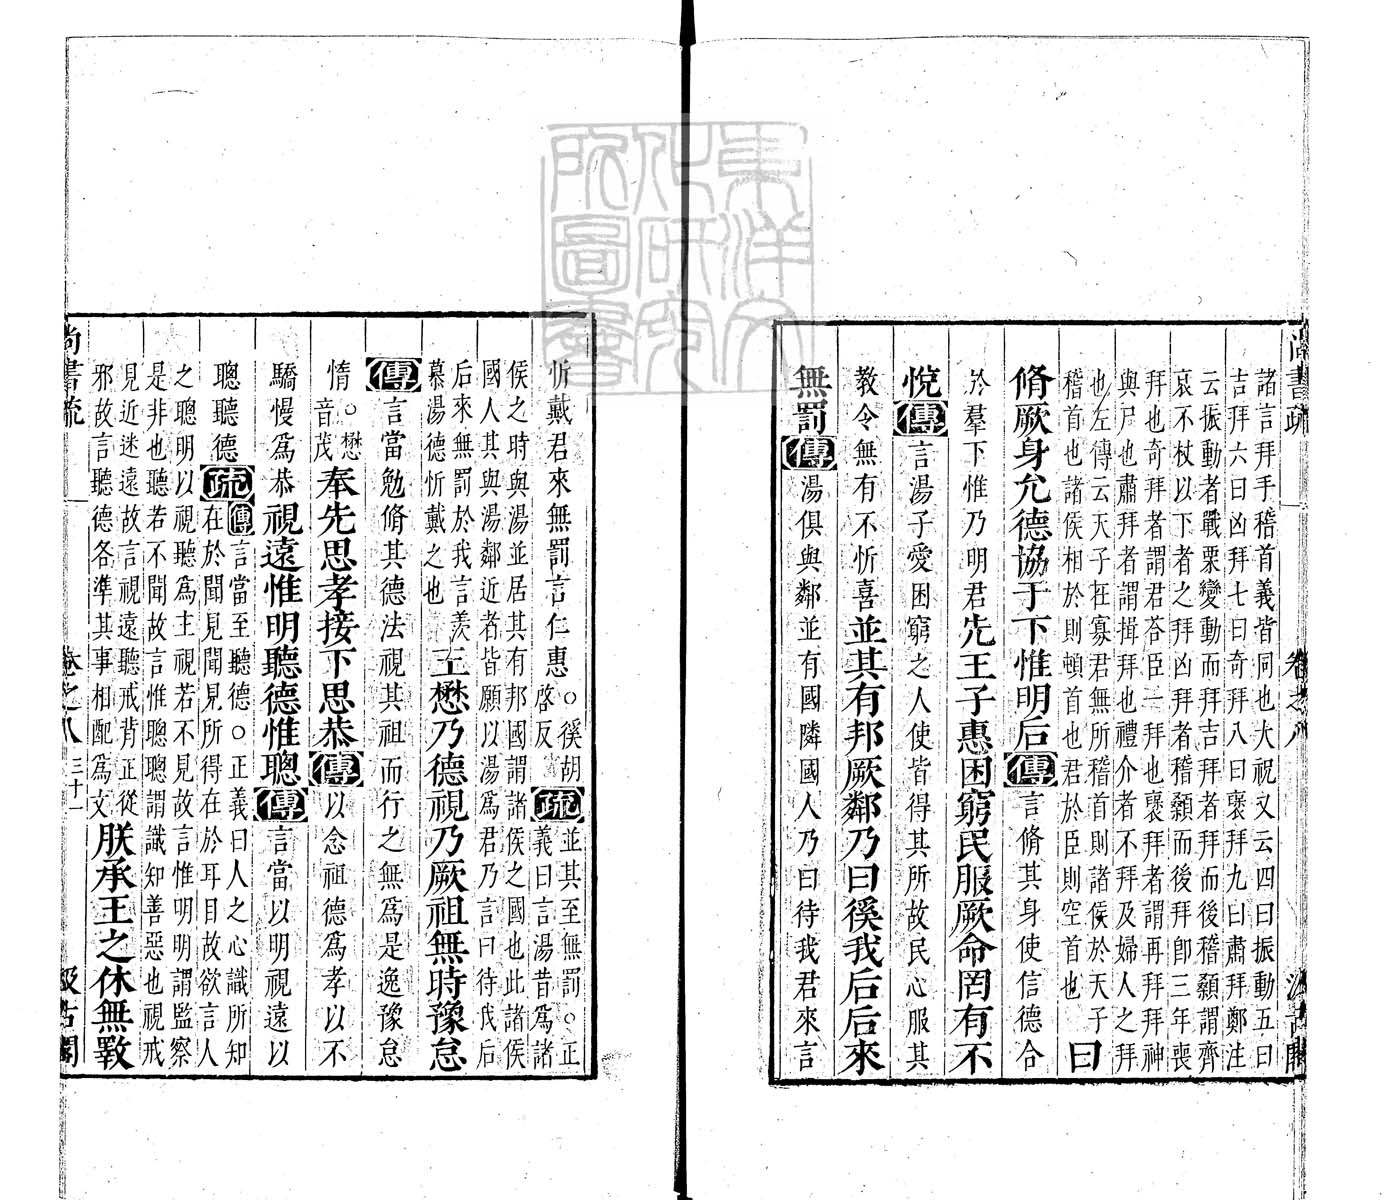 尚書疏 卷之八 汲古閣
諸言拜手稽首義皆同也大祝又云四曰振動五曰
吉拜六曰凶拜七曰奇拜八曰襃拜九曰肅拜鄭注
云振動者戰栗變動而拜吉拜者拜而後稽顙謂齊
衰不杖以下者之拜凶拜者稽顙而後拜卽三年喪
拜也奇拜者謂君荅臣一拜也襃拜者謂再拜拜神
與尸也肅拜者謂揖拜也禮介者不拜及婦人之拜
也左傳云天子在寡君無所稽首則諸侯於天子
稽首也諸侯相於則頓首也君於臣則空首也
曰
脩厥身允德協于下惟明后傳言脩其身使信德合
於羣下惟乃明君先王子惠困窮民服厥命罔有不
悅傳言湯子愛困窮之人使皆得其所故民心服其
教令無有不忻喜並其有邦厥鄰乃曰徯我后后來
無罰傳湯俱與鄰並有國隣國人乃曰待我君來言
忻戴君來無罰言仁惠○徯胡
啓反
疏並其至無罰○正
義曰言湯昔爲諸
侯之時與湯並居其有邦國謂諸侯之國也此諸侯
國人其與湯鄰近者皆願以湯爲君乃言曰待我后
后來無罰於我言羨
慕湯德忻戴之也
王懋乃德視乃厥祖無時豫怠
傳言當勉脩其德法視其祖而行之無爲是逸豫怠
惰○懋
音茂
奉先思孝接下思恭傳以念祖德爲孝以不
驕慢爲恭視遠惟明聽德惟聰傳言當以明視遠以
聰聽德疏傳言當至聽德○正義曰人之心識所知
在於聞見聞見所得在於耳目故欲言人
之聰明以視聽爲主視若不見故言惟明明謂監察
是非也聽若不聞故言惟聰聰謂識知善惡也視戒
見近迷遠故言視遠聽戒背正從
邪故言聽德各準其事相配爲文
朕承王之休無斁
尚書疏 卷之八 三十一 汲古閣
東洋文化研究所圖書